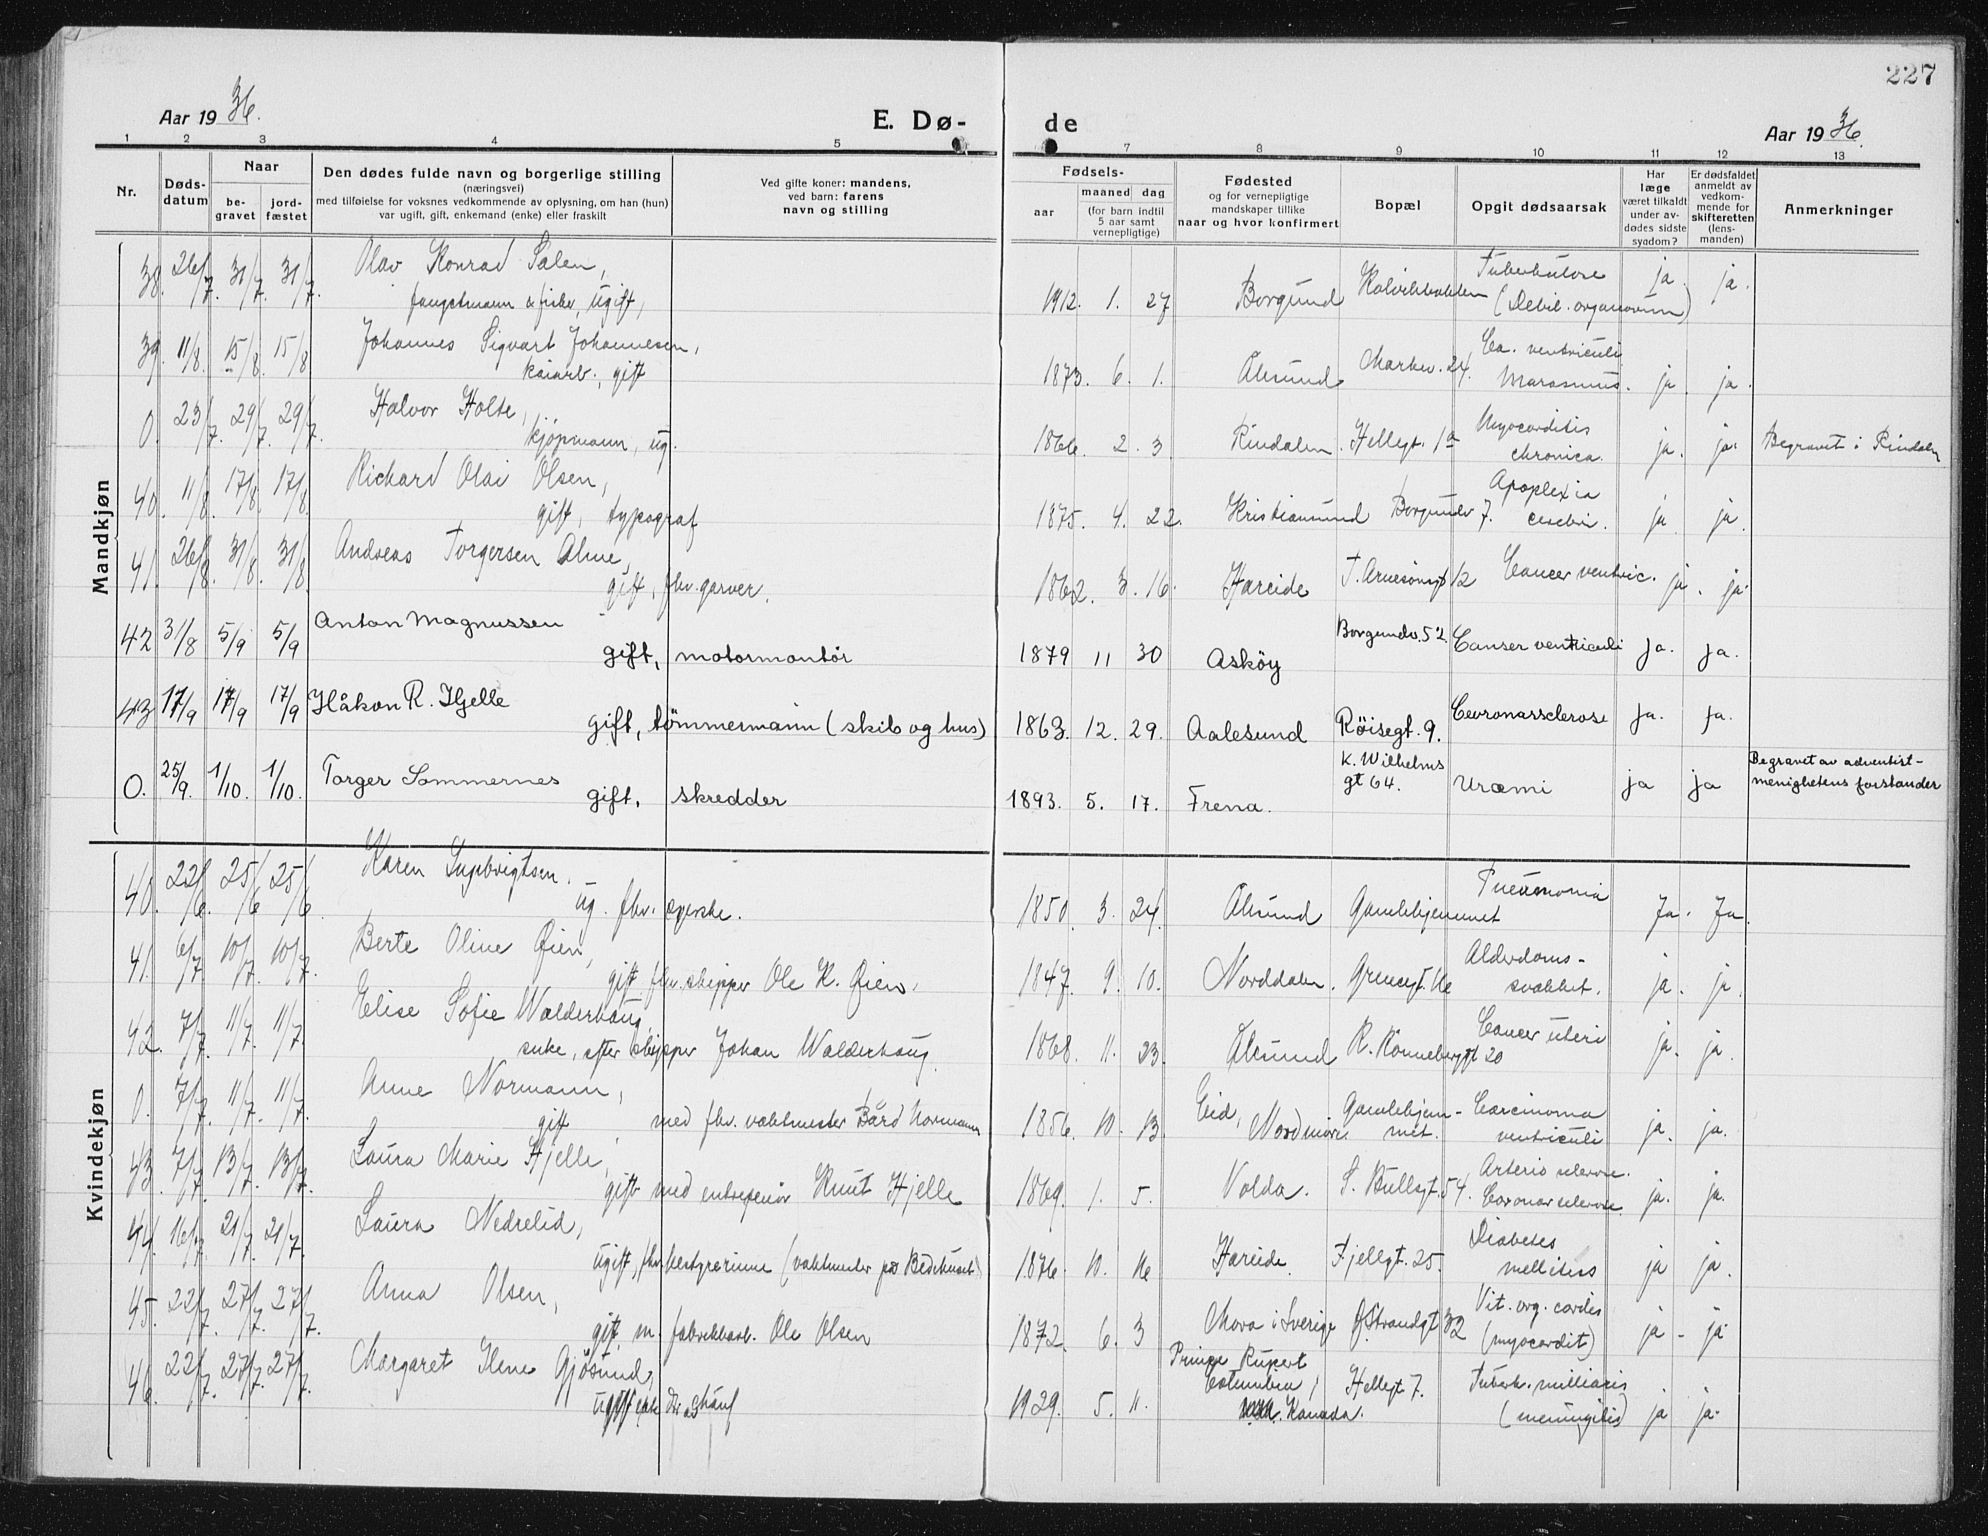 227
Aar 1936.
E. Dø-
de
Aar 1936.
1 2 3 4 5 7 8 9 10 11 12 13
Nr.
Døds-
datum
Naar
be-
gravet
jord-
fæstet
Den dødes fulde navn og borgerlige stilling
(næringsvei)
med tilføielse for voksnes vedkommende av oplysning, om han (hun)
var ugift, gift, enkemand (enke) eller fraskilt
Ved gifte koner: mandens,
ved barn: farens
navn og stilling
Fødsels-
aar
maaned dag
(for barn indtil
5 aar samt
vernepligtige)
Fødested
og for vernepligtige
mandskaper tillike
naar og hvor konfirmert
Bopæl
Opgit dødsaarsak
Har
læge
været tilkaldt
under av-
dødes sidste
sygdom?
Er dødsfaldet
anmeldt av
vedkom-
mende for
skifteretten
(lens-
manden)
Anmerkninger
Mandkjøn
38. 26/7. 31/7. 31/7. Olav Konrad Salen, Tuberkulose ja. ja.
fangstmann & fisker, ugift, 1912. 1. 27 Borgund Kalvikbakken (Debil. organorum)
39. 11/8. 15/8. 15/8 Johannes Sigvart Johannesen, Ca. ventriculi
kaiarb., gift 1873. 6. 1. Ålesund Markev. 24. Marasmus. ja ja.
0. 23/7. 29/7. 29/7. Halvor Holte, Myocarditis
kjøpmann, ug. 1866. 2. 3 Rindalen Hellegt. 1a chronica. ja. ja. Begravet i Rindalen
40. 11/8. 17/8. 17/8. Richard Olai Olsen, Apoplexia
gift, typograf 1875. 4. 22. Kristiansund Borgundv 7. cerebri. ja ja.
41. 26/8. 31/8. 31/8. Andreas Torgersen Alme,
gift, fhv. garver. 1862. 3. 16. Hareide T. Arnesønsgt 12 Cancer ventric. ja. ja.
42 31/8 5/9 5/9 Anton Magnussen Borgundv. 52.
gift, motormontör 1879 11 30 Asköy Canser ventriculi ja. ja.
43 17/9 17/9 17/9 Håkon R. Hjelle
gift, tömmermann (skib og hus) 1863. 12. 29. Aalesund Røisegt. 9. Cevronarsclerose ja. ja.
0. 25/9. 1/10. 1/10. Torger Sommernes K. Wilhelms Begravet av adventist-
gift, skredder 1893. 5. 17. Frena. gt 64. Uræmi ja ja menighetens forstander
Kvindekjøn
40. 22/6. 25/6 25/6 Karen Pneumonia
ug. fhv. syerske. 1850. 3. 24. Ålesund Gamlehjemmet Ja. Ja.
41. 6/7. 10/7. 10/7. Berte Oline Øien, Alderdoms-
gift fhv. skipper Ole K. Øien. 1847. 9. 10. Norddalen. svakhet. ja. ja.
42. 7/7. 11/7. 11/7. Elise Sofie Walderhaug, Cancer uteri
enke, efter skipper Johan Walderhaug. 1868. 11. 23. Ålesund R. Rønneberggt 20 ja. ja.
0. 7/7. 11/7. 11/7. Anne Normann, Eid, Gamlehjem- Carcinoma
gift, med fhv. vaktmester Bård Normann 1856. 10. 13. Nordmøre met. ventriculi ja. ja.
43. 7/7. 13/7. 13/7. Laura Marie Hjelle, Arterio sclerose.
gift med entreprenör Knut Hjelle 1869. 1. 5. Volda. S. Bullsgt. 54. Coronarsclerose. ja. ja.
44. 16/7. 21/7. 21/7. Laura Nedrelid, Diabetes
ugift, fhv. bestyrerinne (vaktmester på Bedehuset) 1876. 10. 16 Hareide. Fjellgt. 25. mellitus ja ja.
45. 22/7. 27/7. 27/7. Anna Olsen, Vit. org. cordis
gift m. fabrikkarb. Ole Olsen 1872. 6. 3 Mora i Sverige Ø Strandgt 32 (myocardit) ja ja
46. 22/7. 27/7. 27/7. Margaret Ilene Gjøsund, Prince Rupert
Columbia, Hellegt 7. Tuberk. milliaris
1929. 5. 11. Kanada. (meningitis) ja ja.